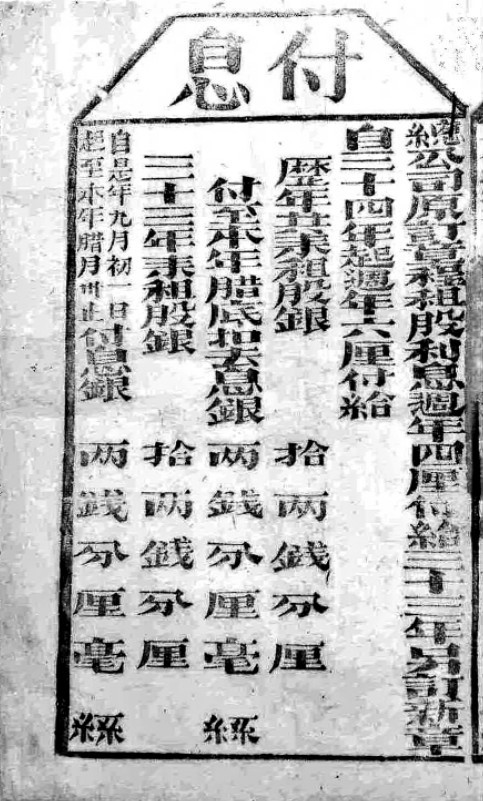 付息
總公司原訂章程租股利息週年四厘付給三十三年另訂新章
自三十四年起週年六厘付給
歷年共租股銀 拾两錢分厘
付至本年腊底扣去息銀 两錢分厘毫絲
三十三年租股銀 拾两錢分厘
自是年九月初一日
起至本年腊月卅止
付息銀 两錢分厘毫絲